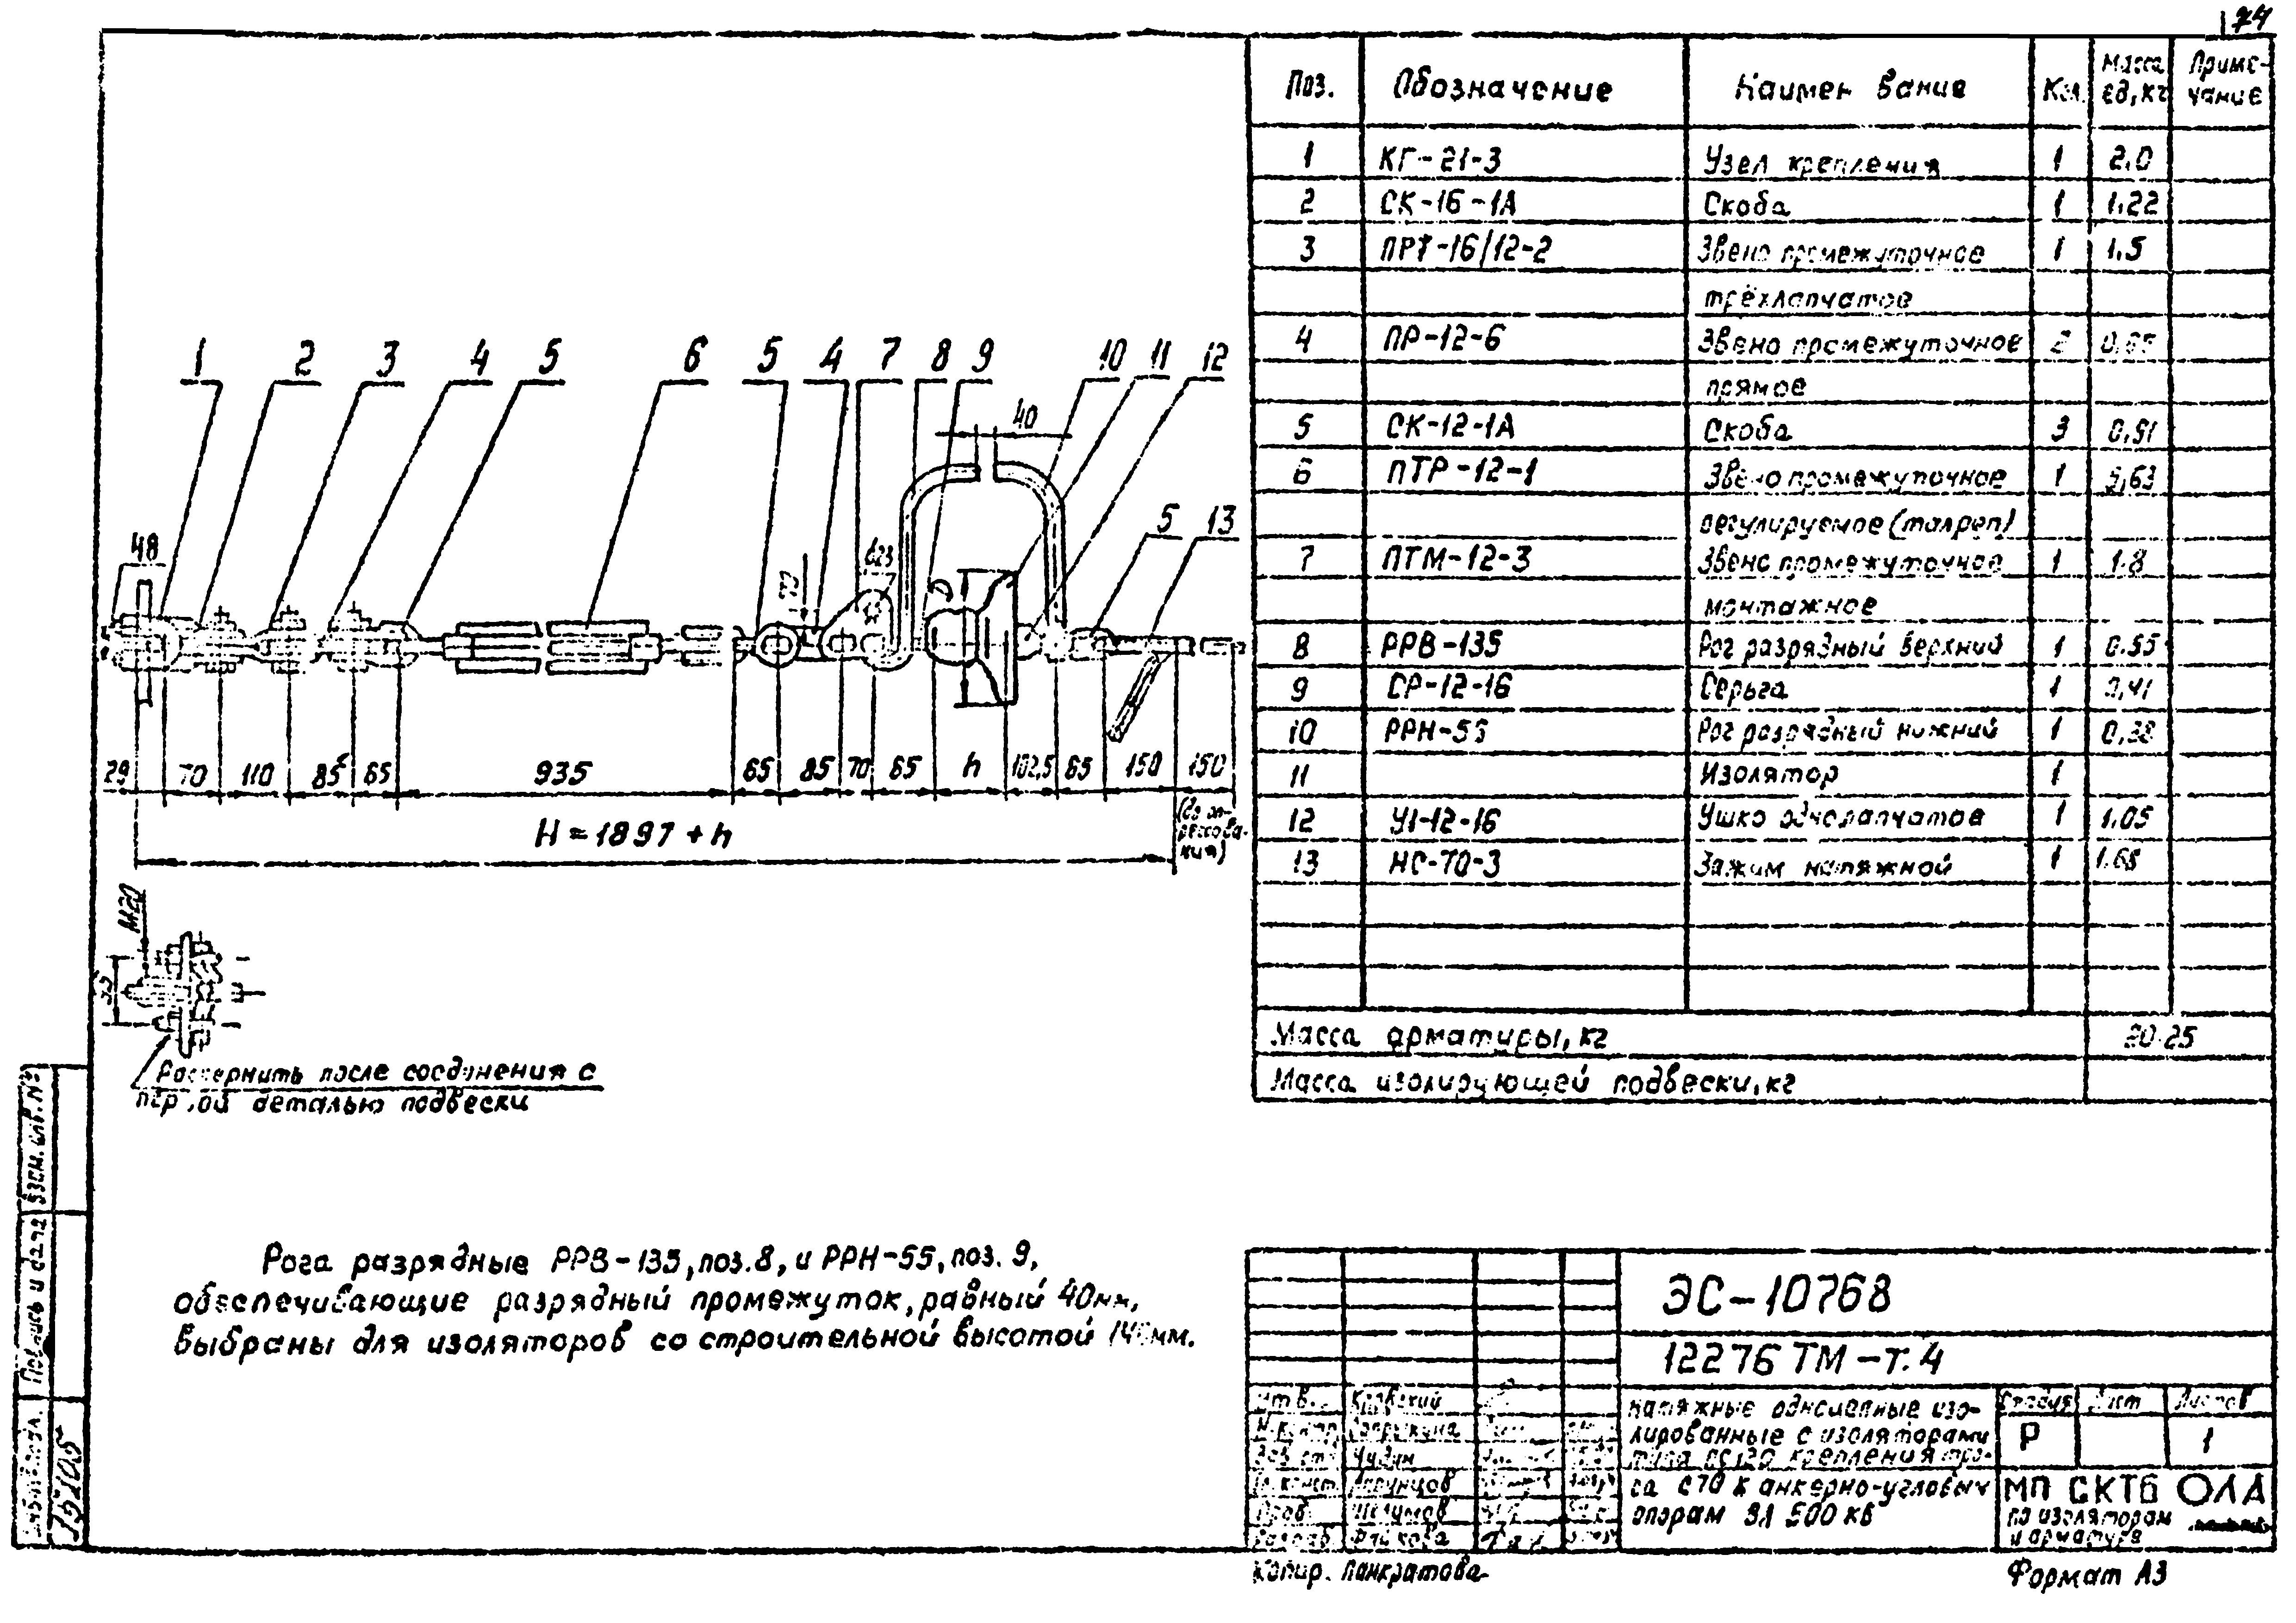 74
Поз. Обозначение Наимен вание Кол. Масса ед, кг Приме-чание
1 КГ-21-3 Узел крепления 1 2,0
2 СК-16-1А Скоба 1 1,22
3 ПРТ-16/12-2 Звено промежуточное 1 1.5
трёхлапчатое
4 ПР-12-6 Звено промежуточное 2
прямое
5 СК-12-1А Скоба 3 0,91
6 ПТР-12-1 Звено промежуточное 1
регулируемое (талреп)
7 ПТМ-12-3 Звено промежуточное 1 1.8
монтажное
8 РРВ-135 Рог разрядный верхний 1 0.55
9 СР-12-16 Серьга 1 0,41
10 РРН-55 Рог разрядный нижний 1
11 Изолятор 1
12 У1-12-16 Ушко однолапчатое 1 1.05
13 НС-70-3 Зажим натяжной 1
Масса арматуры, кг 20.25
Масса изолирующей подвески, кг
1 2 3 4 5 6 5 4 7 8 9 10 11 12
40
5 13
48
29 70 110 85 65 935 65 85 70 65 h 102,5 65 150 150
(до оп-
рессова-
ния)
H = 1897 + h
М20
Развернуть после соединения с
первой деталью подвески
Рога разрядные РРВ-135, поз. 8, и РРН-55, поз. 9,
обеспечивающие разрядный промежуток, равный 40мм,
выбраны для изоляторов со строительной высотой мм.
ЭС-10768
12276 ТМ-т.4
Утв.
Н.контр.
Натяжные одноцепные изо-
лированные с изоляторами
типа ПС120 крепления тро-
са С70 к анкерно-угловым
опорам ВЛ 500 кВ
Стадия Лист Листов
Р 1
МП СКТБ ОЛА
по изоляторам
и арматуре
Взам. инв. №
Подпись и дата
Инв. № подл.
Копир. Панкратова
Формат А3